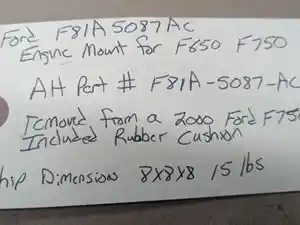 Ford F81A5087AC
Engine Mount for F650 F750
AH Part # F81A-5087-AC
Removed from a 2000 Ford F750
Included Rubber Cushion
hip Dimensions 8X8X8 15 lbs